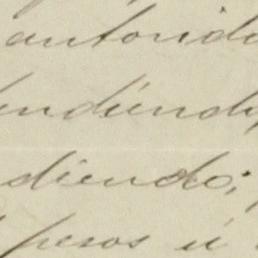 autorida
endiendo
diendo;
pesos ú